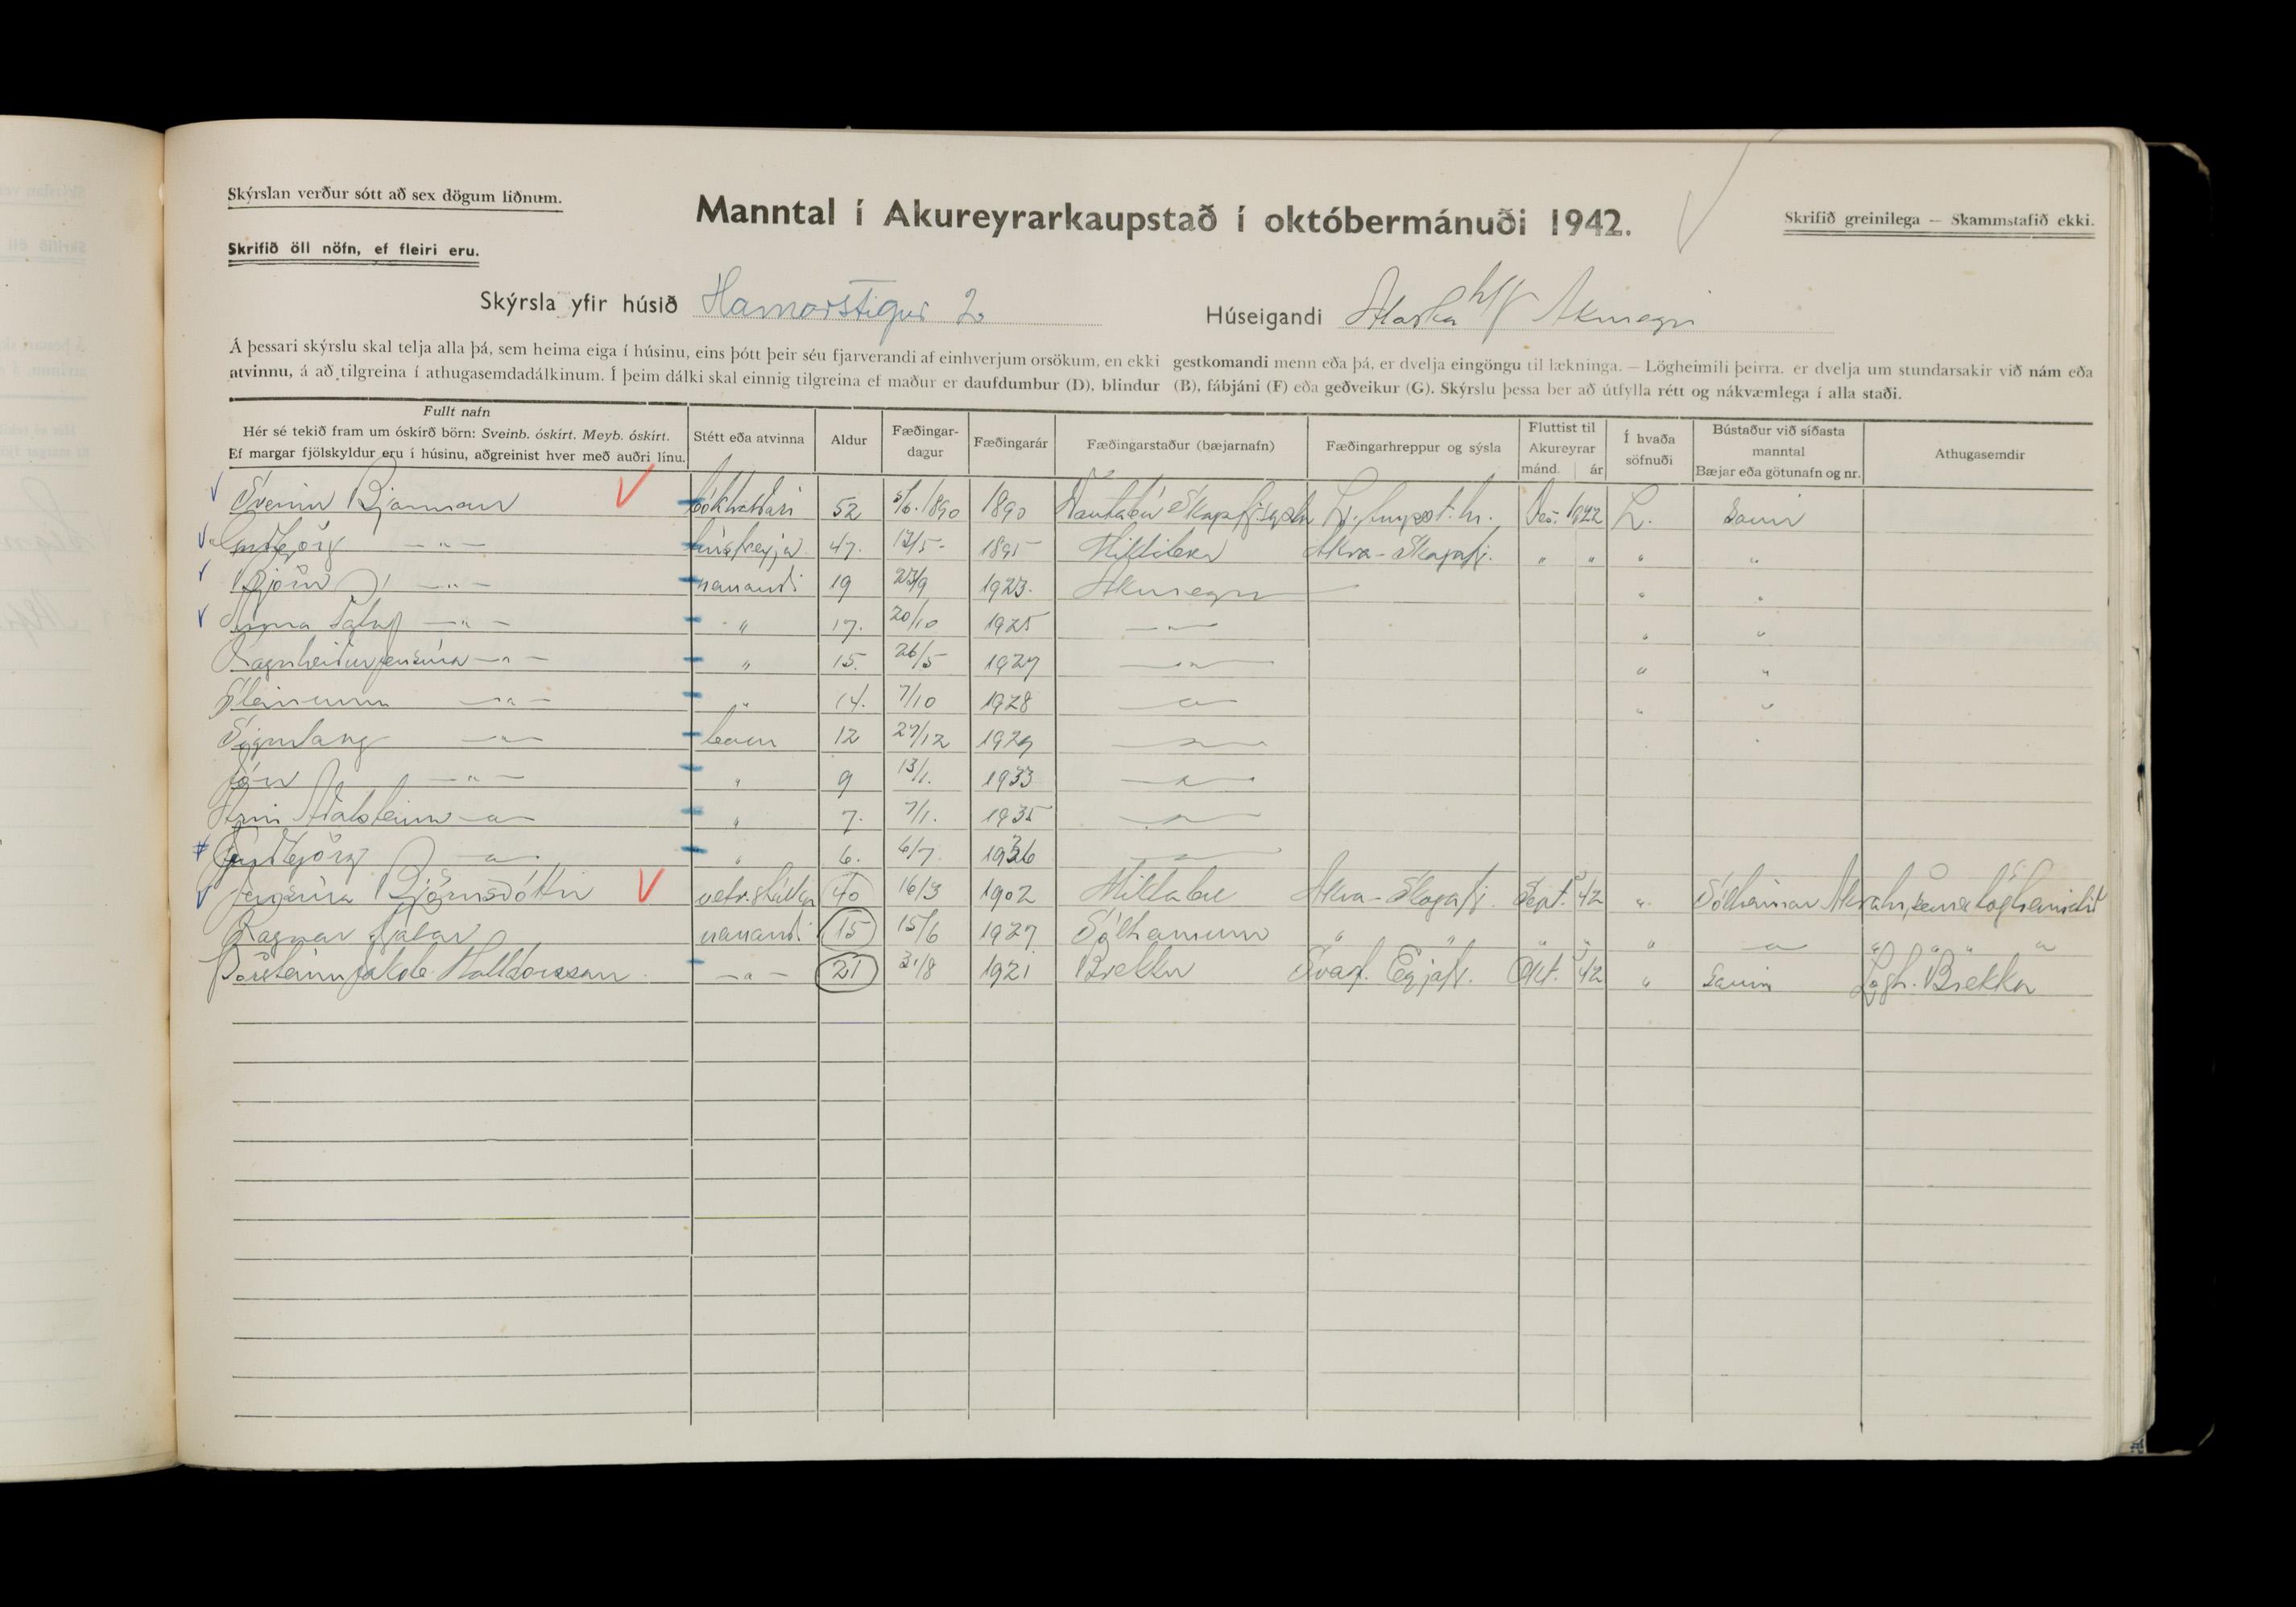 Skýrslan verður sótt að sex dögum liðnum.
Skrifið öll nöfn, ef fleiri eru.
Manntal í Akureyrarkaupstað í októbermánuði 1942.
Skrifið greinilega — Skammstafið ekki.
Skýrsla yfir húsið Hamarstígur 2 Húseigandi Alaska h/f Akureyri
Á þessari skýrslu skal telja alla þá, sem heima eiga í húsinu, eins þótt þeir séu fjarverandi af einhverjum orsökum, en ekki gestkomandi menn eða þá, er dvelja eingöngu til lækninga. — Lögheimili þeirra. er dvelja um stundarsakir við nám eða
atvinnu, á að tilgreina í athugasemdadálkinum. Í þeim dálki skal einnig tilgreina ef maður er daufdumbur (D), blindur (B), fábjáni (F) eða geðveikur (G). Skýrslu þessa ber að útfylla rétt og nákvæmlega í alla staði.
Fullt nafn
Hér sé tekið fram um óskírð börn: Sveinb. óskírt. Meyb. óskírt.
Ef margar fjölskyldur eru í húsinu, aðgreinist hver með auðri línu.
Stétt eða atvinna
Aldur
Fæðingar-
dagur
Fæðingarár
Fæðingarstaður (bæjarnafn)
Fæðingarhreppur og sýsla
Fluttist til
Akureyrar
mánd. ár
Í hvaða
söfnuði
Bústaður við síðasta
manntal
Bæjar eða götunafn og nr.
Athugasemdir
Sveinn Bjarman bókhaldari 52 5/6. 1890 1890 Nautabú Skagafj.sýslu Des. 1922 L. Sami
Guðbjörg — " — húsfreyja 47. 12/5- 1895 Miklibær Akra-Skagafj. " " " "
Björn — " — nemandi 19 23/9 1923. Akureyri — " "
— " — " 17. 20/10 1925 — " — " "
Ragnheiður Jensína — " — " 15. 26/5 1927 — " — " "
Steinunn — " — " 14. 7/10 1928 — " — " "
Sigurlaug — " — barn 12 27/12 1929 — " —
Jón — " — " 9 13/1. 1933 — " —
Árni Aðalsteinn — " — " 7. 7/1. 1935 — " —
Guðbjörg — " — " 6. 6/7. 1936 — " —
Jensína Björnsdóttir vetr.stúlka 40 16/3 1902 Miklabæ Akra-Skagafj. Sept. 42 " Sólheimar
Ragnar Fjalar nemandi 15 15/6 1927 Sólheimum " " " " " — " — " " " "
Þorsteinn Jakob Halldórsson — " — 21 31/8 1921 Brekku Svarf. Eyjafj. Okt. 42 " Sami Lögh. Brekka